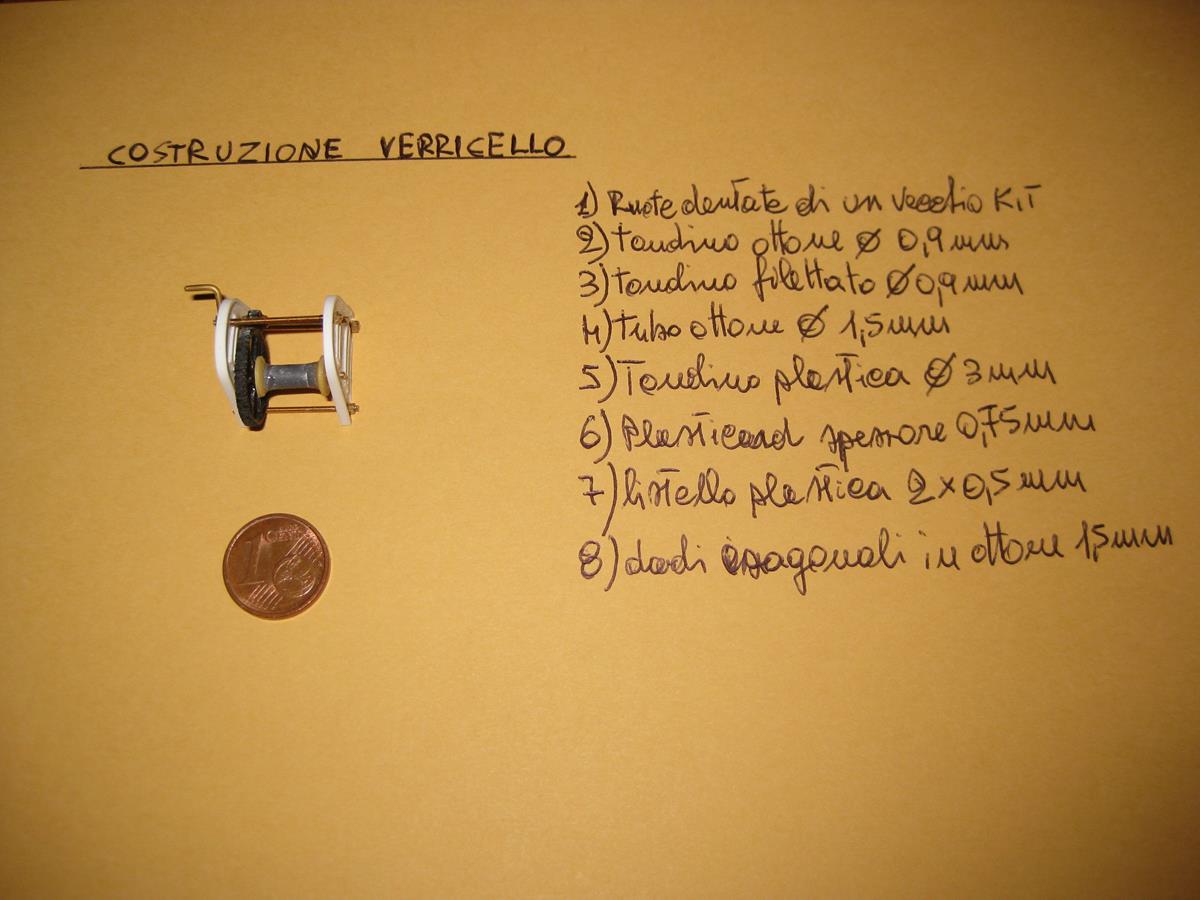 COSTRUZIONE VERRICELLO
1) Ruote dentate di un vecchio KIT
2) tondino ottone Ø 0,9 mm
3) tondino filettato Ø 0,9 mm
4) tubo ottone Ø 1,5 mm
5) Tondino plastica Ø 3 mm
6) Plasticard spessore 0,75 mm
7) listello plastica 2 x 0,5 mm
8) dadi esagonali in ottone 1,5 mm
1
CENT